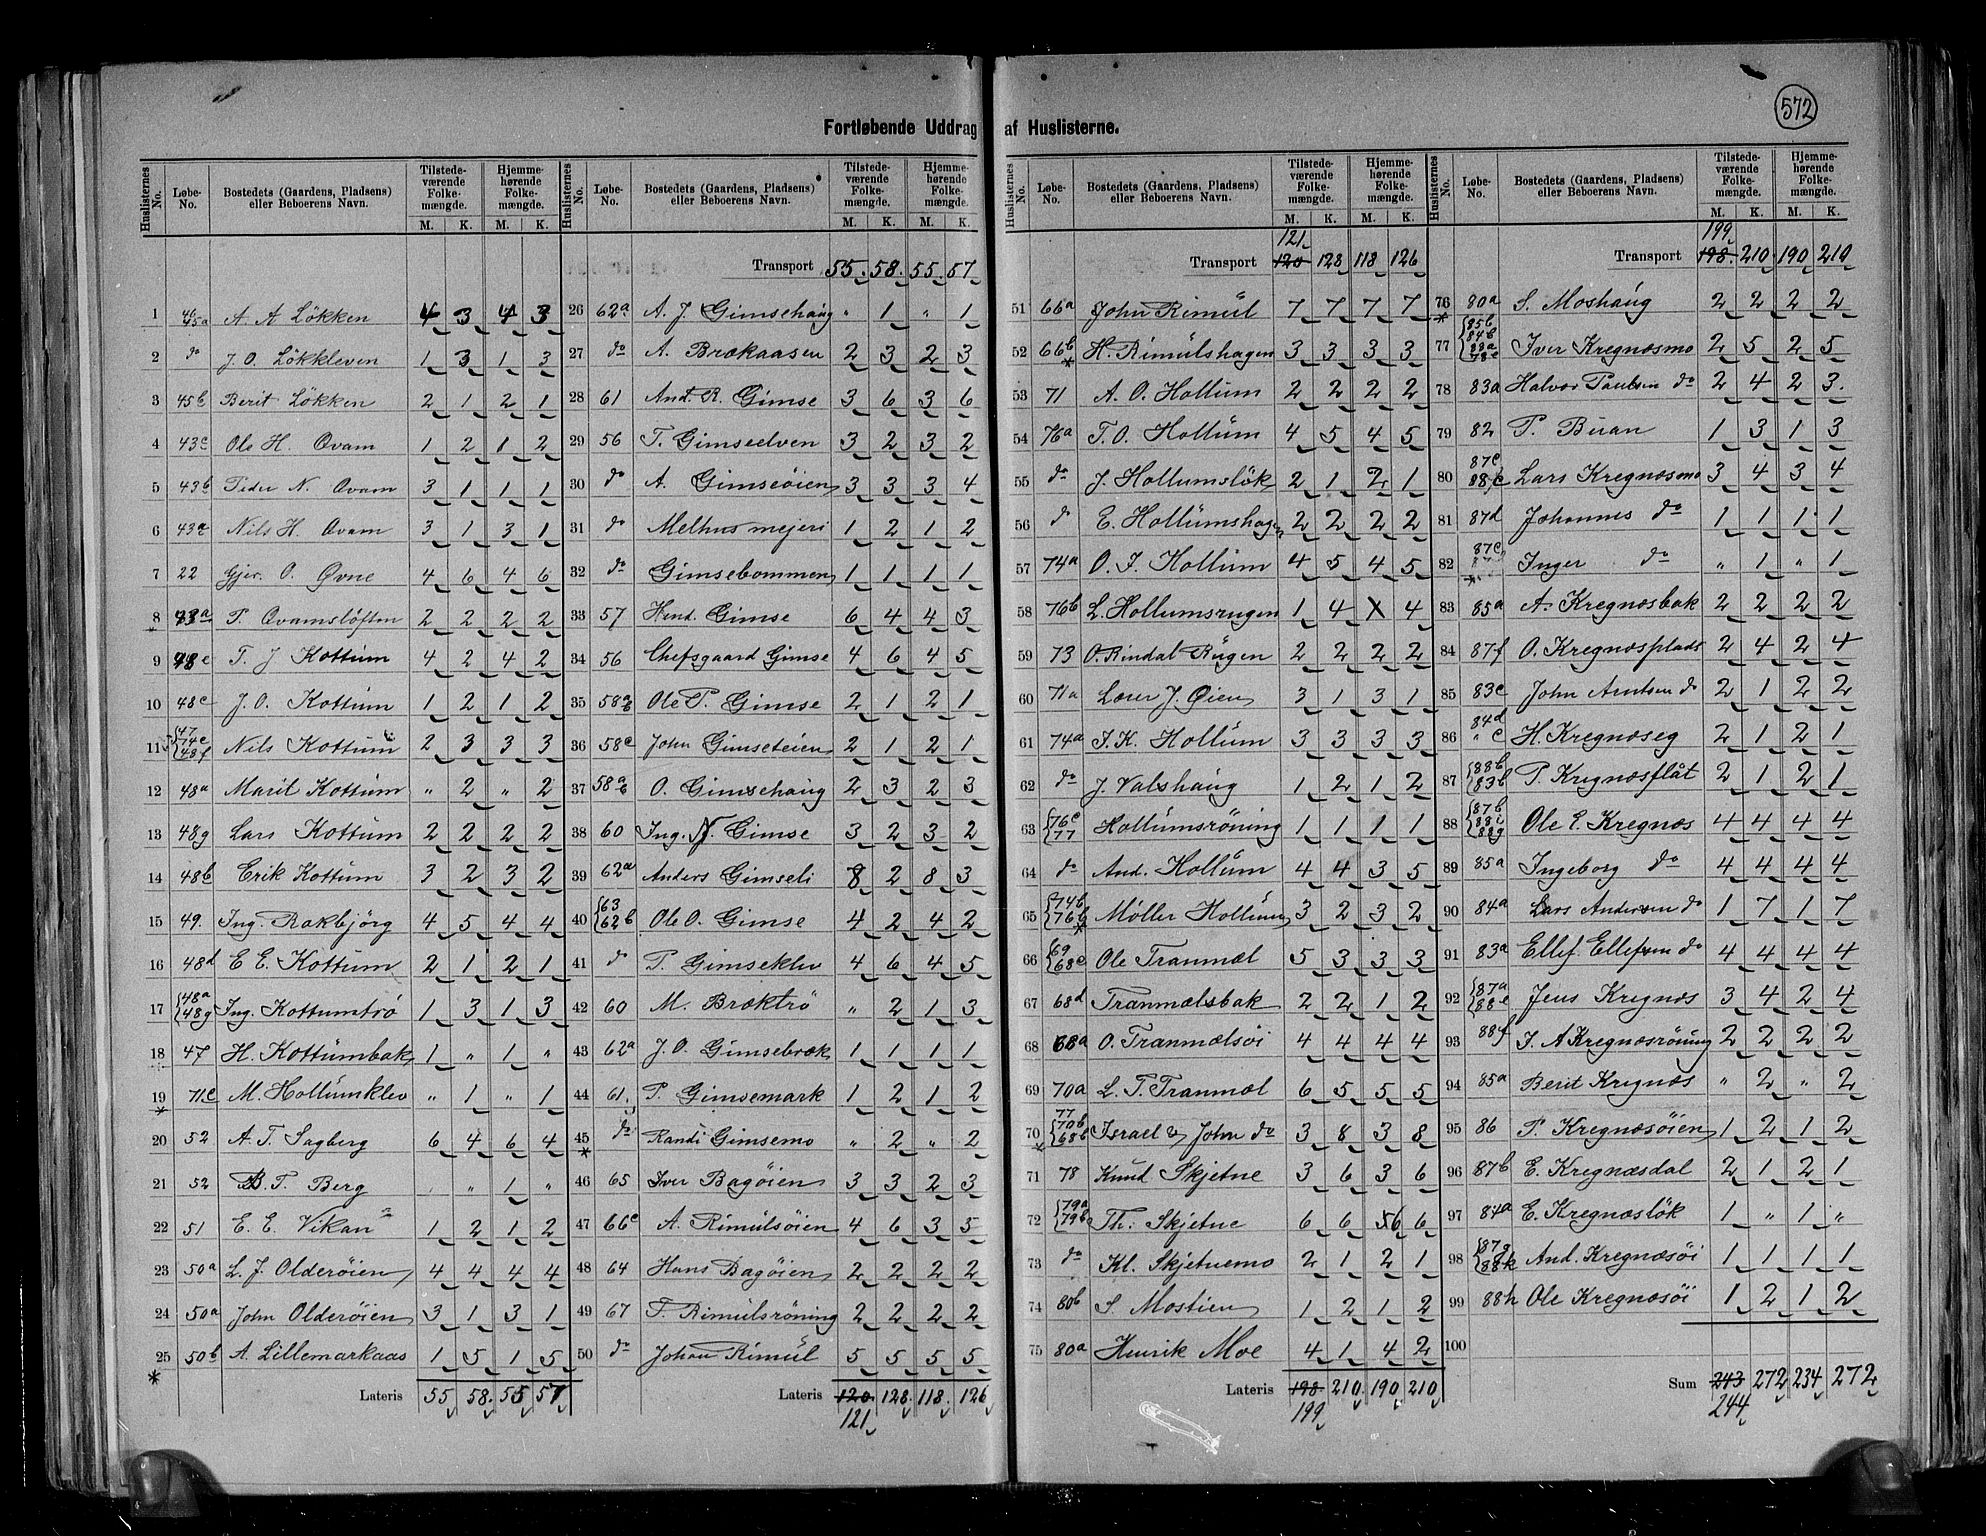 572
Fortløbende Uddrag af Huslisterne.
Huslisternes No. | Løbe-No. | Bostedets (Gaardens, Pladsens) eller Beboerens Navn. | Tilstedeværende Folkemængde. M. K. | Hjemmehørende Folkemængde. M. K.
1 45a A A Løkken 4 3 4 3
2 do J. O. Løkkleven 1 3 1 3
3 45b Berit Løkken 2 1 2 1
4 43c Ole H. Qvam 1 2 1 2
5 43b Peder N. Qvam 3 1 1 1
6 43a Nils H. Qvam 3 1 3 1
7 22 Gjer. O. Øvne 4 6 4 6
8 P. Qvamsløften 2 2 2 2
9 48e T. J Kottum 4 2 4 2
10 48c J. O. Kottum 1 2 1 2
11 47 74c 48f Nils Kottum 2 3 3 3
12 48a Marit Kottum " 2 " 2
13 48g Lars Kottum 2 2 2 2
14 48b Erik Kottum 3 2 3 2
15 49. Ing. Rakbjörg 4 5 4 4
16 48d E E. Kottum 2 1 2 1
17 48a 48g Ing. Kottumtrö 1 3 1 3
18 47 H. Kottumbak 1 " 1 "
19 71c M. Hollumklev " 1 " 1
20 52 A. T. Sagberg 6 4 6 4
21 52 B. T. Berg " 1 "
22 51 E. E. Vikan 1 2 1 2
23 50a L. J. Olderöien 4 4 4 4
24 50a John Olderöien 3 1 3 1
25 50b A. Lillemarkaas 1 5 1 5
Lateris 55 58. 55 57
Transport 55. 58. 55. 57
26 62a A. J. Gimsehaug " 1 " 1
27 do A. Brækaasen 2 3 2 3
28 61 And. R. Gimse 3 6 3 6
29 56 T. Gimseelven 3 2 3 2
30 do A. Gimseöien 3 3 3 4
31 do Melhus mejeri 1 2 1 2
32 do Gimsebommen 1 1 1 1
33 57 Hend. Gimse 6 4 4 3
34 56 Chefsgaard Gimse 4 6 4 5
35 Ole P. Gimse 2 1 2 1
36 58c John Gimseteien 2 1 2 1
37 O. Gimsehaug 2 3 2 3
38 60 Ing. N. Gimse 3 2 3 2
39 62a Anders Gimseli 8 2 8 3
40 63 62b Ole O. Gimse 4 2 4 2
41 do P. Gimseklev 4 6 4 5
42 60 M. Bræktrö " 2 1 3
43 62a J. O. Gimsebræk 1 1 1 1
44 61 P. Gimsemark 1 2 1 2
45 do Randi Gimsemo " 2 " 2
46 65 Iver Bagöien 3 3 2 3
47 66c A. Rimulsöien 4 6 3 5
48 64 Hans Bagöien 2 2 2 2
49 67 T. Rimulsröning 2 2 2 2
50 do Johan Rimul 5 5 5 5
Lateris 120 128. 118. 126
121
121
Transport 120 128 118 126
51 66a John Rimul 7 7 7 7
52 66b H. Rimulshagen 3 3 3 3
53 71 A. O. Hollum 2 2 2 2
54 76a T. O. Hollum 4 5 4 5
55 do J. Hollumslök 2 1 2 1
56 do E. Hollumshagen 2 2 2 2
57 74a O. J. Hollum 4 5 4 5
58 76b L. Hollumsrugen 1 4 X 4
59 73 O. Rindal Rugen 2 2 2 2
60 71a Loser J. Øien 3 1 3 1
61 74a J. K. Hollum 3 3 3 3
62 do J. Valshaug 1 2 1 2
63 76c 77 Hollumsröning 1 1 1 1
64 do And. Hollum 4 4 3 5
65 74b 76b Møller Hollum 3 2 3 2
66 69 68c Ole Tranmæl 5 3 3 3
67 68d Tranmælsbak 2 2 1 2
68 68a O. Tranmælsöi 4 4 4 4
69 70a L. T. Tranmæl 6 5 5 5
70 77 70b 68b Israel & John do 3 8 3 8
71 78 Knud Skjetne 3 6 3 6
72 79a 79b Th. Skjetne 6 6 56 6
73 do Kl. Skjetnemo 2 1 2 1
74 80b S. Mostien 1 2 1 2
75 80a Henrik Moe 4 1 4 2
Lateris 198 210 190 210
199
199
Transport 198. 210 190 210
76 80a S. Moshaug 2 2 2 2
77 85b 84b 88a 78c Iver Kregnæsmo 2 5 2 5
78 83a Halvor Paulsen do 2 4 2 3.
79 82 P. Buan 1 3 1 3
80 87c Lars Kregnæsmo 3 4 3 4
81 87d Johannes do 1 1 1 1
82 87c Inger do " 1 " 1
83 85a A. Kregnæsbak 2 2 2 2
84 87f O. Kregnæsplads 2 4 2 4
85 83c John Arntsen do 2 1 2 2
86 84d " c H. Kregnæseg 2 1 2 1
87 88b 83b P. Kregnæsflåt 2 1 2 1
88 87b 88i 88g Ole E. Kregnæs 4 4 4 4
89 85a Ingeborg do 4 4 4 4
90 84a Lars Andersen do 1 7 1 7
91 83a Ellef Ellefsen do 4 4 4 4
92 87a 88e Jens Kregnæs 3 4 2 4
93 88f J. A Kregnæsröning 2 2 2 2
94 85a Berit Kregnæs " 2 " 2
95 86 P. Kregnæsöien 1 2 1 2
96 87b E. Kregnæsdal 2 1 2 1
97 84a E. Kregnæslök 1 " 1 "
98 87g 88k And. Kregnæsöi 1 1 1 1
99 88h Ole Kregnæsöi 1 2 1 2
100
Sum 243 272 234 272
244